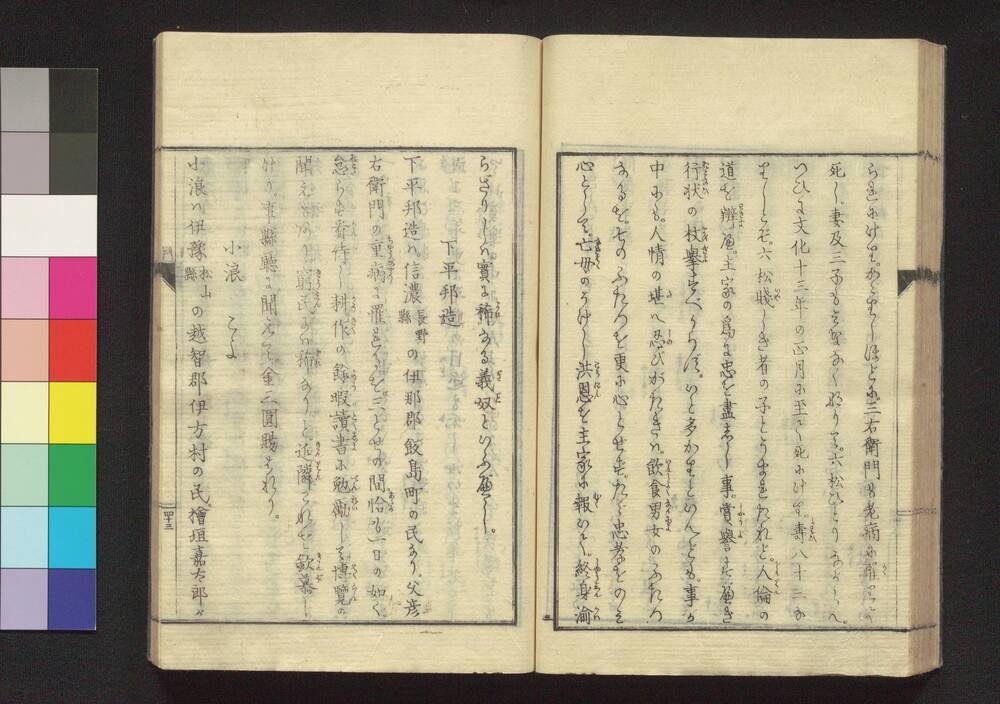 らまにけり。かくせしほどに三右衛門も老病に罹りて
死し。妻及三子もみななくなりて。六松ひとりながらへ。
つひに文化十三年の正月に至て死にけり。壽八十二な
りしとぞ。六松賤しき者の子とうまれたれど。人倫の
道を辨へ。主家の爲に忠を盡しゝ事。賞譽すべき
行状の枚擧すべからず。いと多かりといへども。事の
中にも。人情の堪へ忍びがたきは。飲食男女のふたつ
なるを。そのふたつを更に心とせず。たゞ忠孝をのみ
心として。亡母のうけし洪恩を主家に報いて。終身渝
らざりしハ實に稀なる義奴といふべし。
下平邦造
下平邦造ハ信濃長野縣の伊那郡飯島町の民なり。父彦
右衛門の重病に罹れるを三とせの間恰も一日の如く
怠らず看侍し耕作の餘暇讀書に勉勵して博覽の
聞えあり躬民には稀なりと近隣の人々も欽慕し
けり事縣廳に聞えて金二圓賜はれり。
小浪 こよ
小浪ハ伊豫松山縣の越智郡伊方村の民檜垣嘉太郎が
四十三